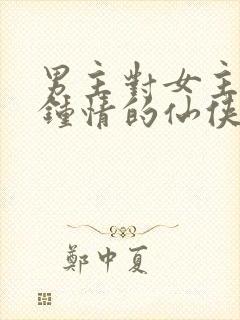 男主對女主
鍾情的仙俠
鄭中夏